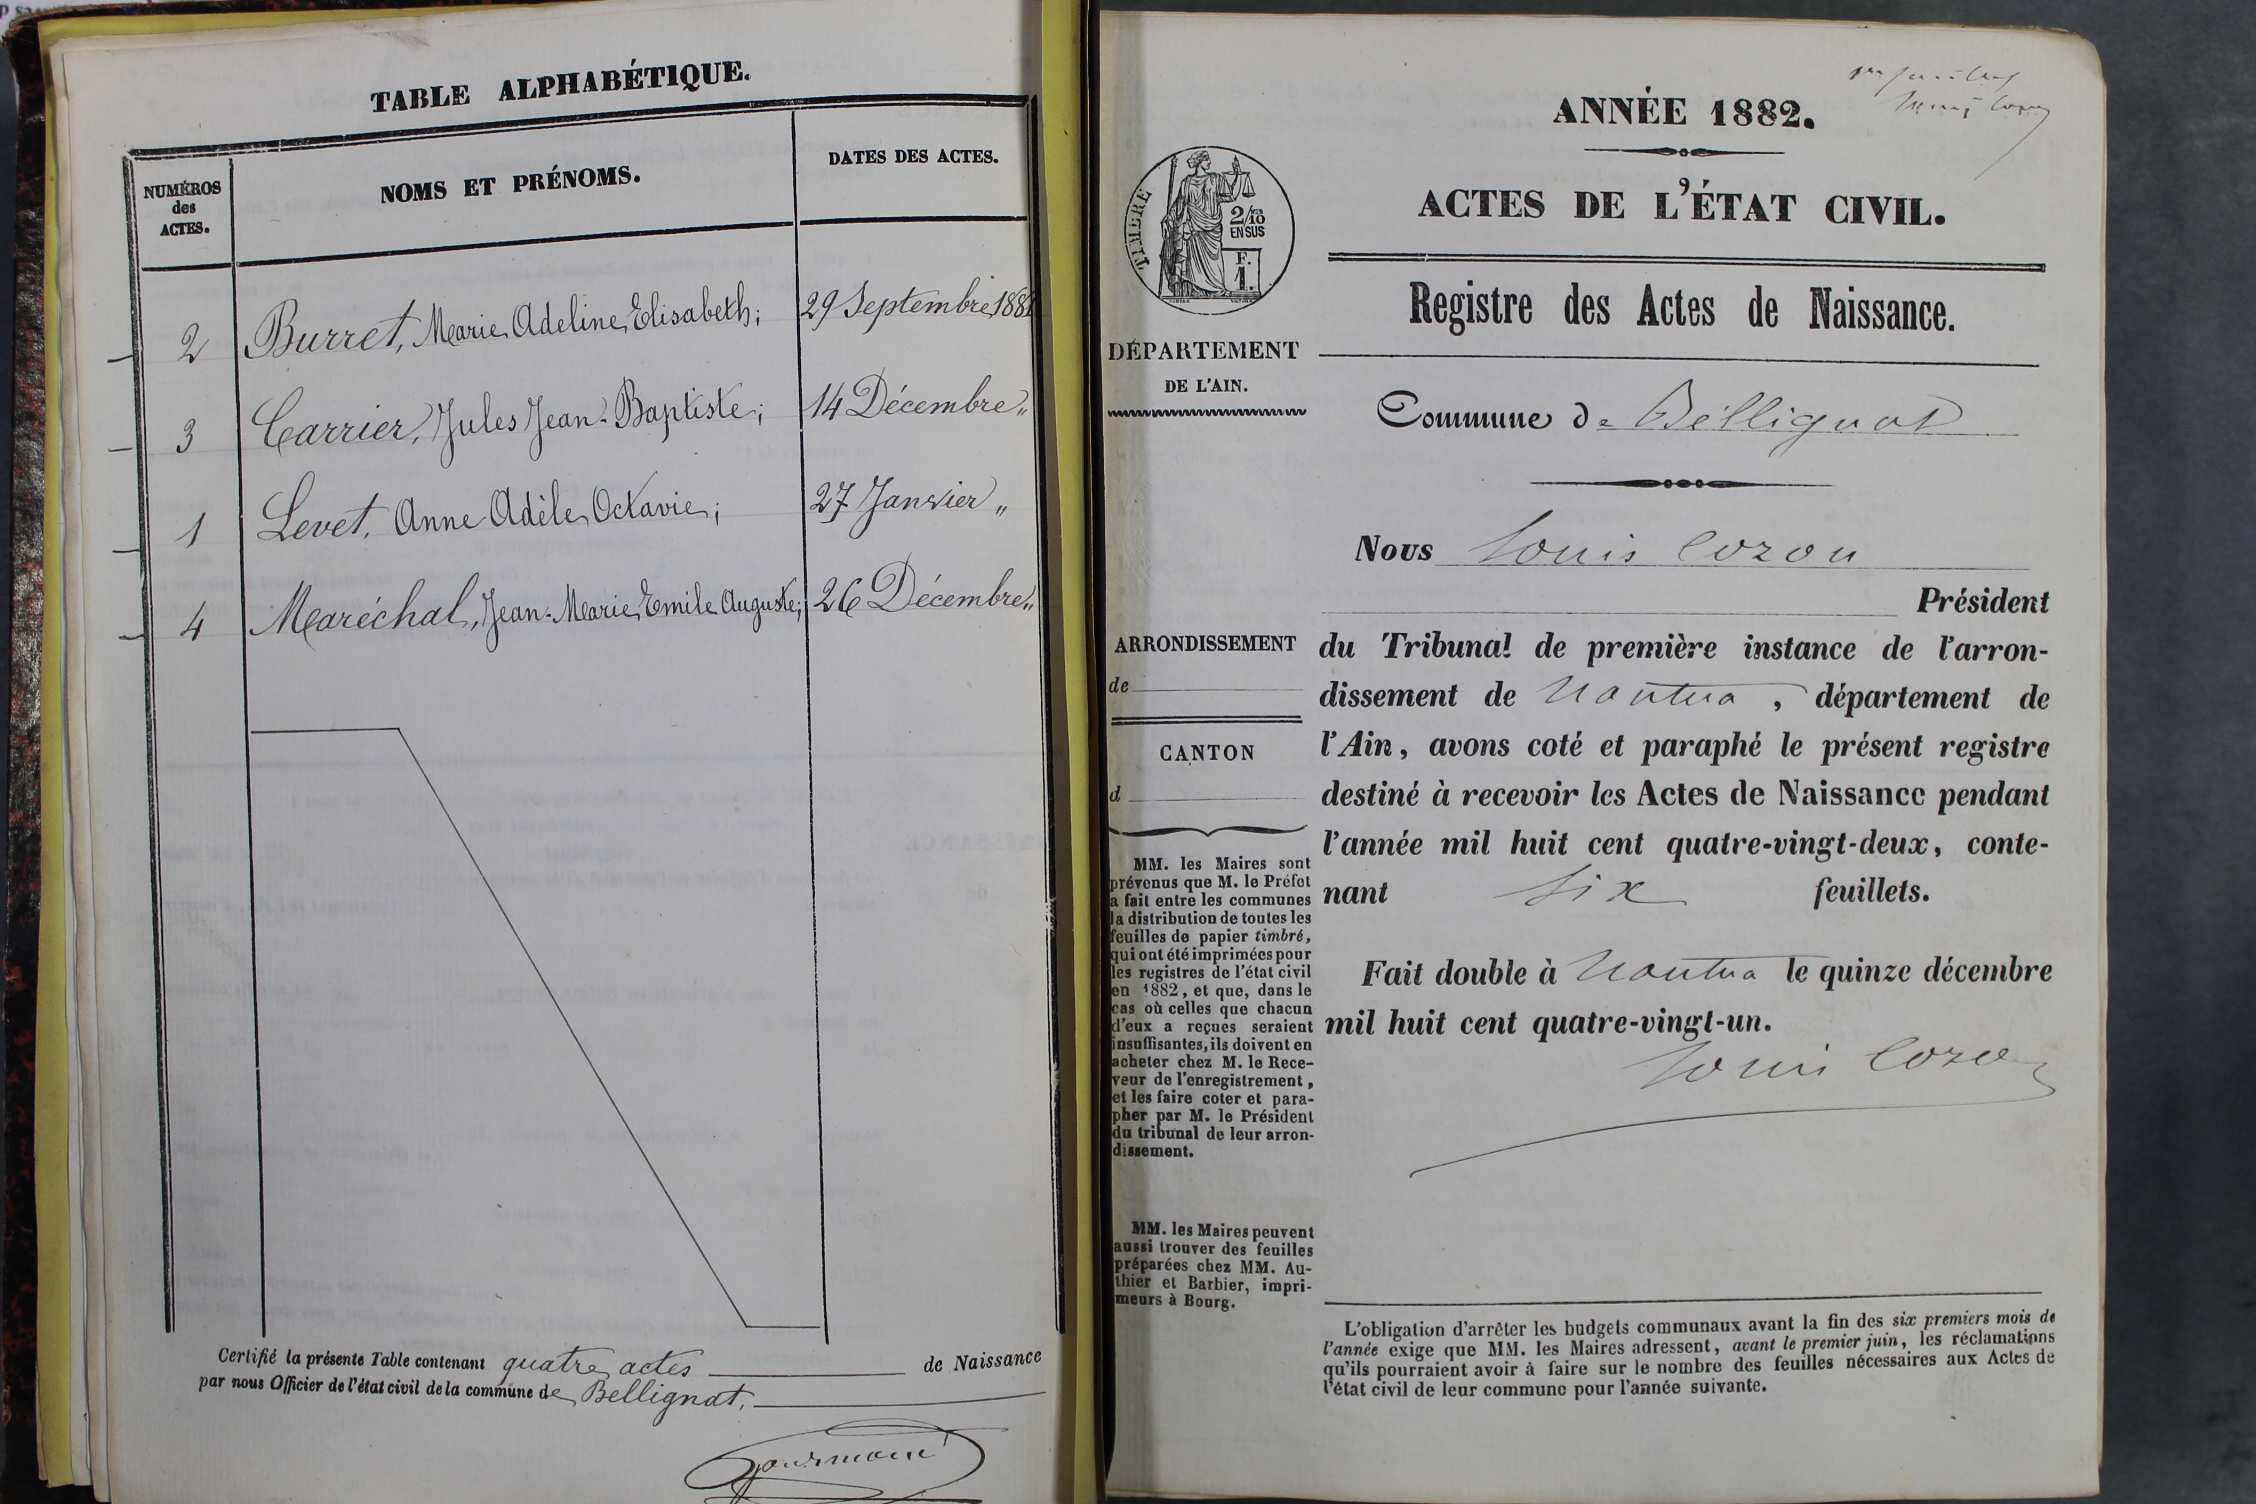 TABLE ALPHABÉTIQUE.
NUMÉROS
des
ACTES.
NOMS ET PRÉNOMS.
DATES DES ACTES.
2 Burret, Marie Adeline Elisabeth; 29 Septembre 1881
3 Carrier, Jules Jean-Baptiste; 14 Décembre "
1 Levet, Anne Adèle Octavie; 27 Janvier "
4 Maréchal, Jean-Marie Emile Auguste; 26 Décembre "
Certifié la présente Table contenant quatre actes de Naissance
par nous Officier de l'état civil de la commune de Bellignat.
ANNÉE 1882.
ACTES DE L'ÉTAT CIVIL.
TIMBRE
2/10
EN SUS
F.
1.
Registre des Actes de Naissance.
DÉPARTEMENT
DE L'AIN.
Commune de Bélliguat
Nous Louis Cozon
Président
ARRONDISSEMENT
de
CANTON
d
du Tribunal de première instance de l'arron-
dissement de Nantua, département de
l'Ain, avons coté et paraphé le présent registre
destiné à recevoir les Actes de Naissance pendant
l'année mil huit cent quatre-vingt-deux, conte-
nant six feuillets.
Fait double à Nantua le quinze décembre
mil huit cent quatre-vingt-un.
Louis Cozon
MM. les Maires sont
prévenus que M. le Préfet
a fait entre les communes
la distribution de toutes les
feuilles de papier timbré,
qui ont été imprimées pour
les registres de l'état civil
en 1882, et que, dans le
cas où celles que chacun
d'eux a reçues seraient
insuffisantes, ils doivent en
acheter chez M. le Rece-
veur de l'enregistrement,
et les faire coter et para-
pher par M. le Président
du tribunal de leur arron-
dissement.
MM. les Maires peuvent
aussi trouver des feuilles
préparées chez MM. Au-
thier et Barbier, impri-
meurs à Bourg.
L'obligation d'arrêter les budgets communaux avant la fin des six premiers mois de
l'année exige que MM. les Maires adressent, avant le premier juin, les réclamations
qu'ils pourraient avoir à faire sur le nombre des feuilles nécessaires aux Actes de
l'état civil de leur commune pour l'année suivante.